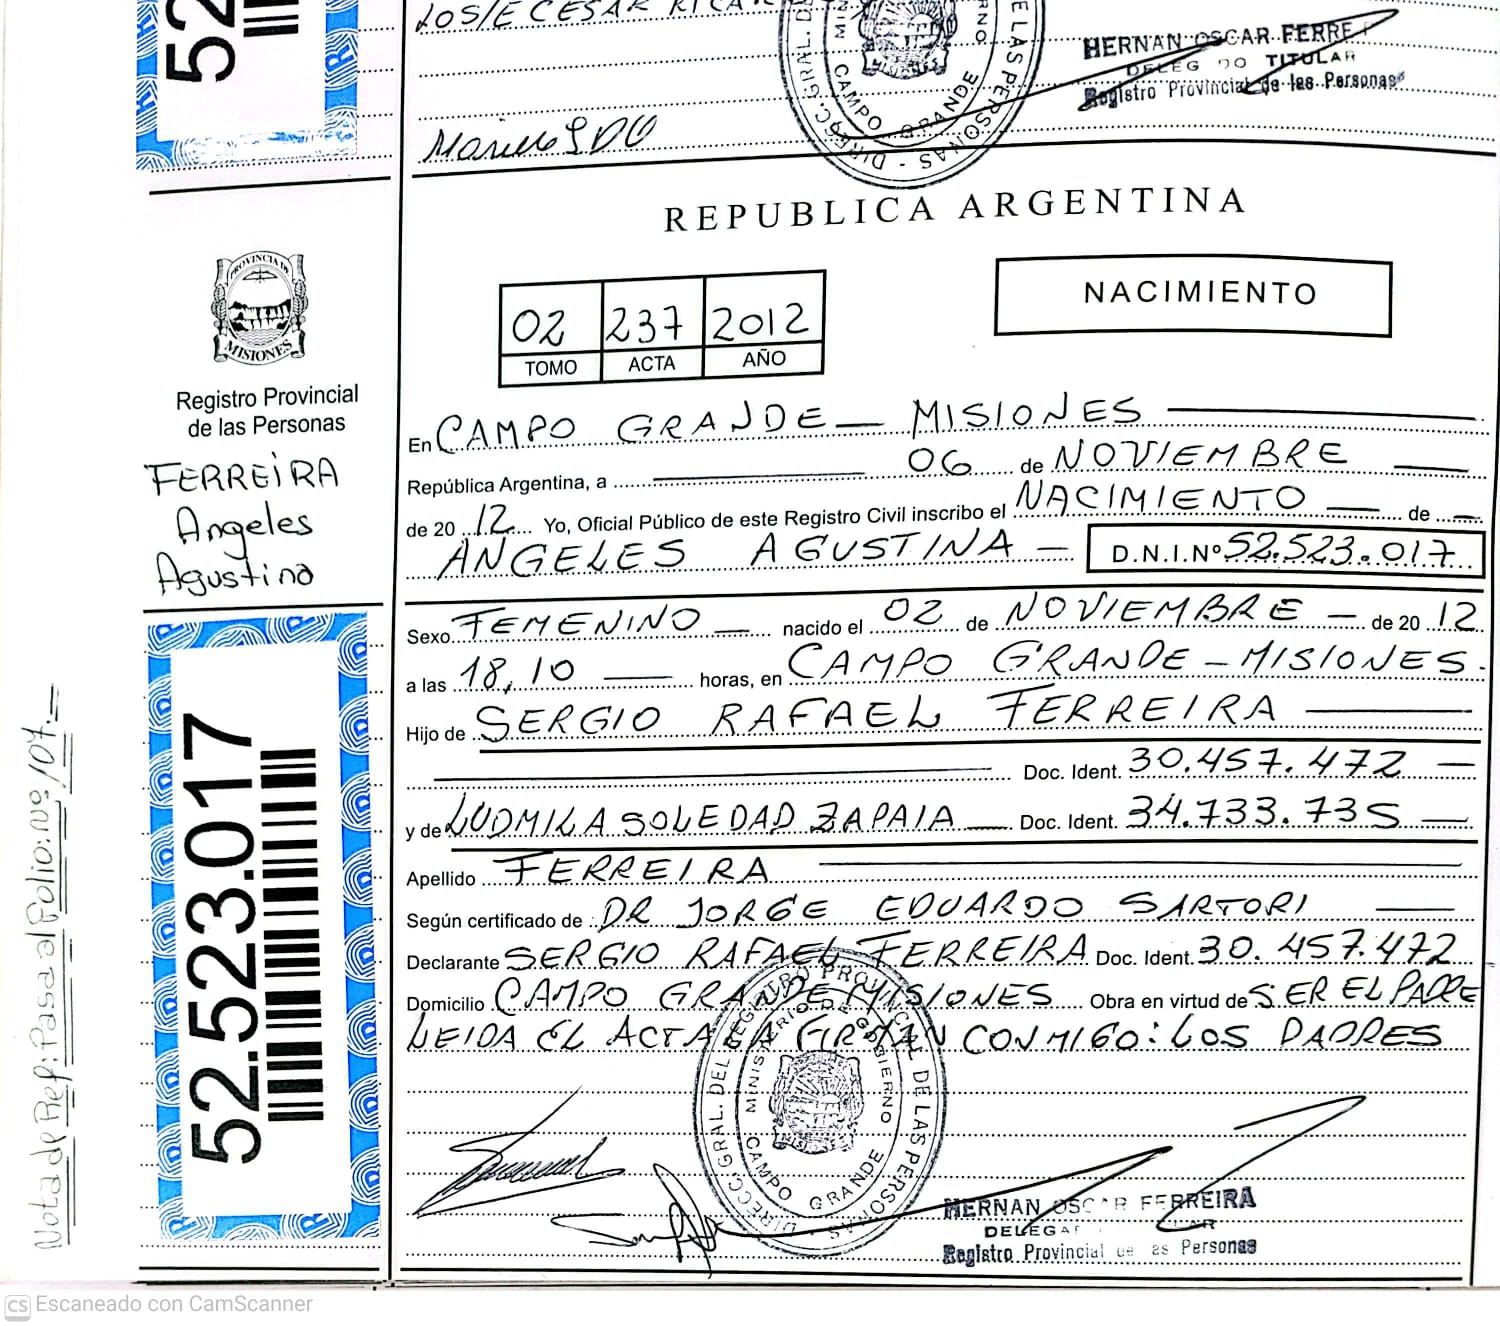 52
JOSE CESAR
DIRECC. GRAL. DE LAS PERSONAS
CAMPO GRANDE
HERNAN OSCAR FERRE
DELEG DO TITULAR
Registro Provincial de las Personas
REPUBLICA ARGENTINA
PROVINCIA DE
MISIONES
Registro Provincial
de las Personas
FERREIRA
Angeles
Agustina
52.523.017
Nota de Ref: Pasa al Folio: Nº 107.=
02 237 2012
TOMO ACTA AÑO
NACIMIENTO
En CAMPO GRANDE — MISIONES
República Argentina, a 06 de NOVIEMBRE
de 20 12 Yo, Oficial Público de este Registro Civil inscribo el NACIMIENTO de
ANGELES AGUSTINA — D.N.I.Nº 52.523.017
Sexo FEMENINO nacido el 02 de NOVIEMBRE de 20 12
a las 18,10 horas, en CAMPO GRANDE - MISIONES.
Hijo de SERGIO RAFAEL FERREIRA
Doc. Ident. 30.457.472
y de LUDMILA SOLEDAD ZAPAIA Doc. Ident. 34.733.735
Apellido FERREIRA
Según certificado de: DR JORGE EDUARDO SARTORI
Declarante SERGIO RAFAEL FERREIRA Doc. Ident. 30.457.472
Domicilio CAMPO GRANDE MISIONES Obra en virtud de SER EL PADRE
LEIDA EL ACTA LA FIRMAN CONMIGO: LOS PADRES
DIRECC. GRAL. DEL REGISTRO PROVINCIAL DE LAS PERSONAS
MINISTERIO DE GOBIERNO
CAMPO GRANDE
HERNAN OSCAR FERREIRA
DELEGA LAR
Registro Provincial de as Personas
CS Escaneado con CamScanner